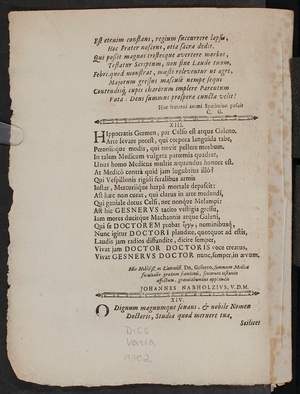 Est etenim constans, regium succurrere lapsis,
Hoc Frater nascens, otia sacra dedit.
Qui possit magnos tristesque avertere morbos,
Testatur Scriptum, non sine Laude tuum,
Febri quod monstrat, mœsti releventur ut ægri,
Majorum gressus masculè nempe sequi
Contendis, cupis charorum implere Parentum
Vota: Deus summus prospera cuncta velit!
Hoc tranquilli animi
C. G.
XIII.
Hippocratis Gremen, par Celso est atque Galeno,
Arte levare potest, qui corpora languida tabe,
Peroniisque modis, qui novit pellere morbum.
In talem Medicum vulgata paræmia quadrat,
Unus homo Medicus multis æquandus honore est.
At Medicô contrà quid jam lugubrius illô?
Qui Vespillonis rigidi feralibus armis
Instar, Mercuriique harpâ mortale depascit:
Ast hæc non curat, qui clarus in arte medendi,
Qui geniale decus Celsi, nec nonque Melampi:
Ast hîc GESNERUS tacito vestigia gressu,
Iam mores ducitque Machaonis atque Galeni,
Qui se DOCTOREM probat ἔργῳ, nominibusq;
Nunc igitur DOCTORI plaudite, quotquot ad estis,
Laudis jam radios diffundite, dicite semper,
Vivat jam DOCTOR DOCTORIS voce creatus,
Vivat GESNERUS DOCTOR nunc, semper, in ævum.
Hisce Nobiliss. ac Literatiss. Dn. Gesnero, summum Medicæ
facultatis gradum
affectum, gratulabundus
JOHANNES NABHOLZIUS, V.D.M.
XIV.
O Dignum magnumque sonans, & nobile Nomen
Doctoris, Studia quod meruere tua,
Scilicet
Diss
Varia
1902